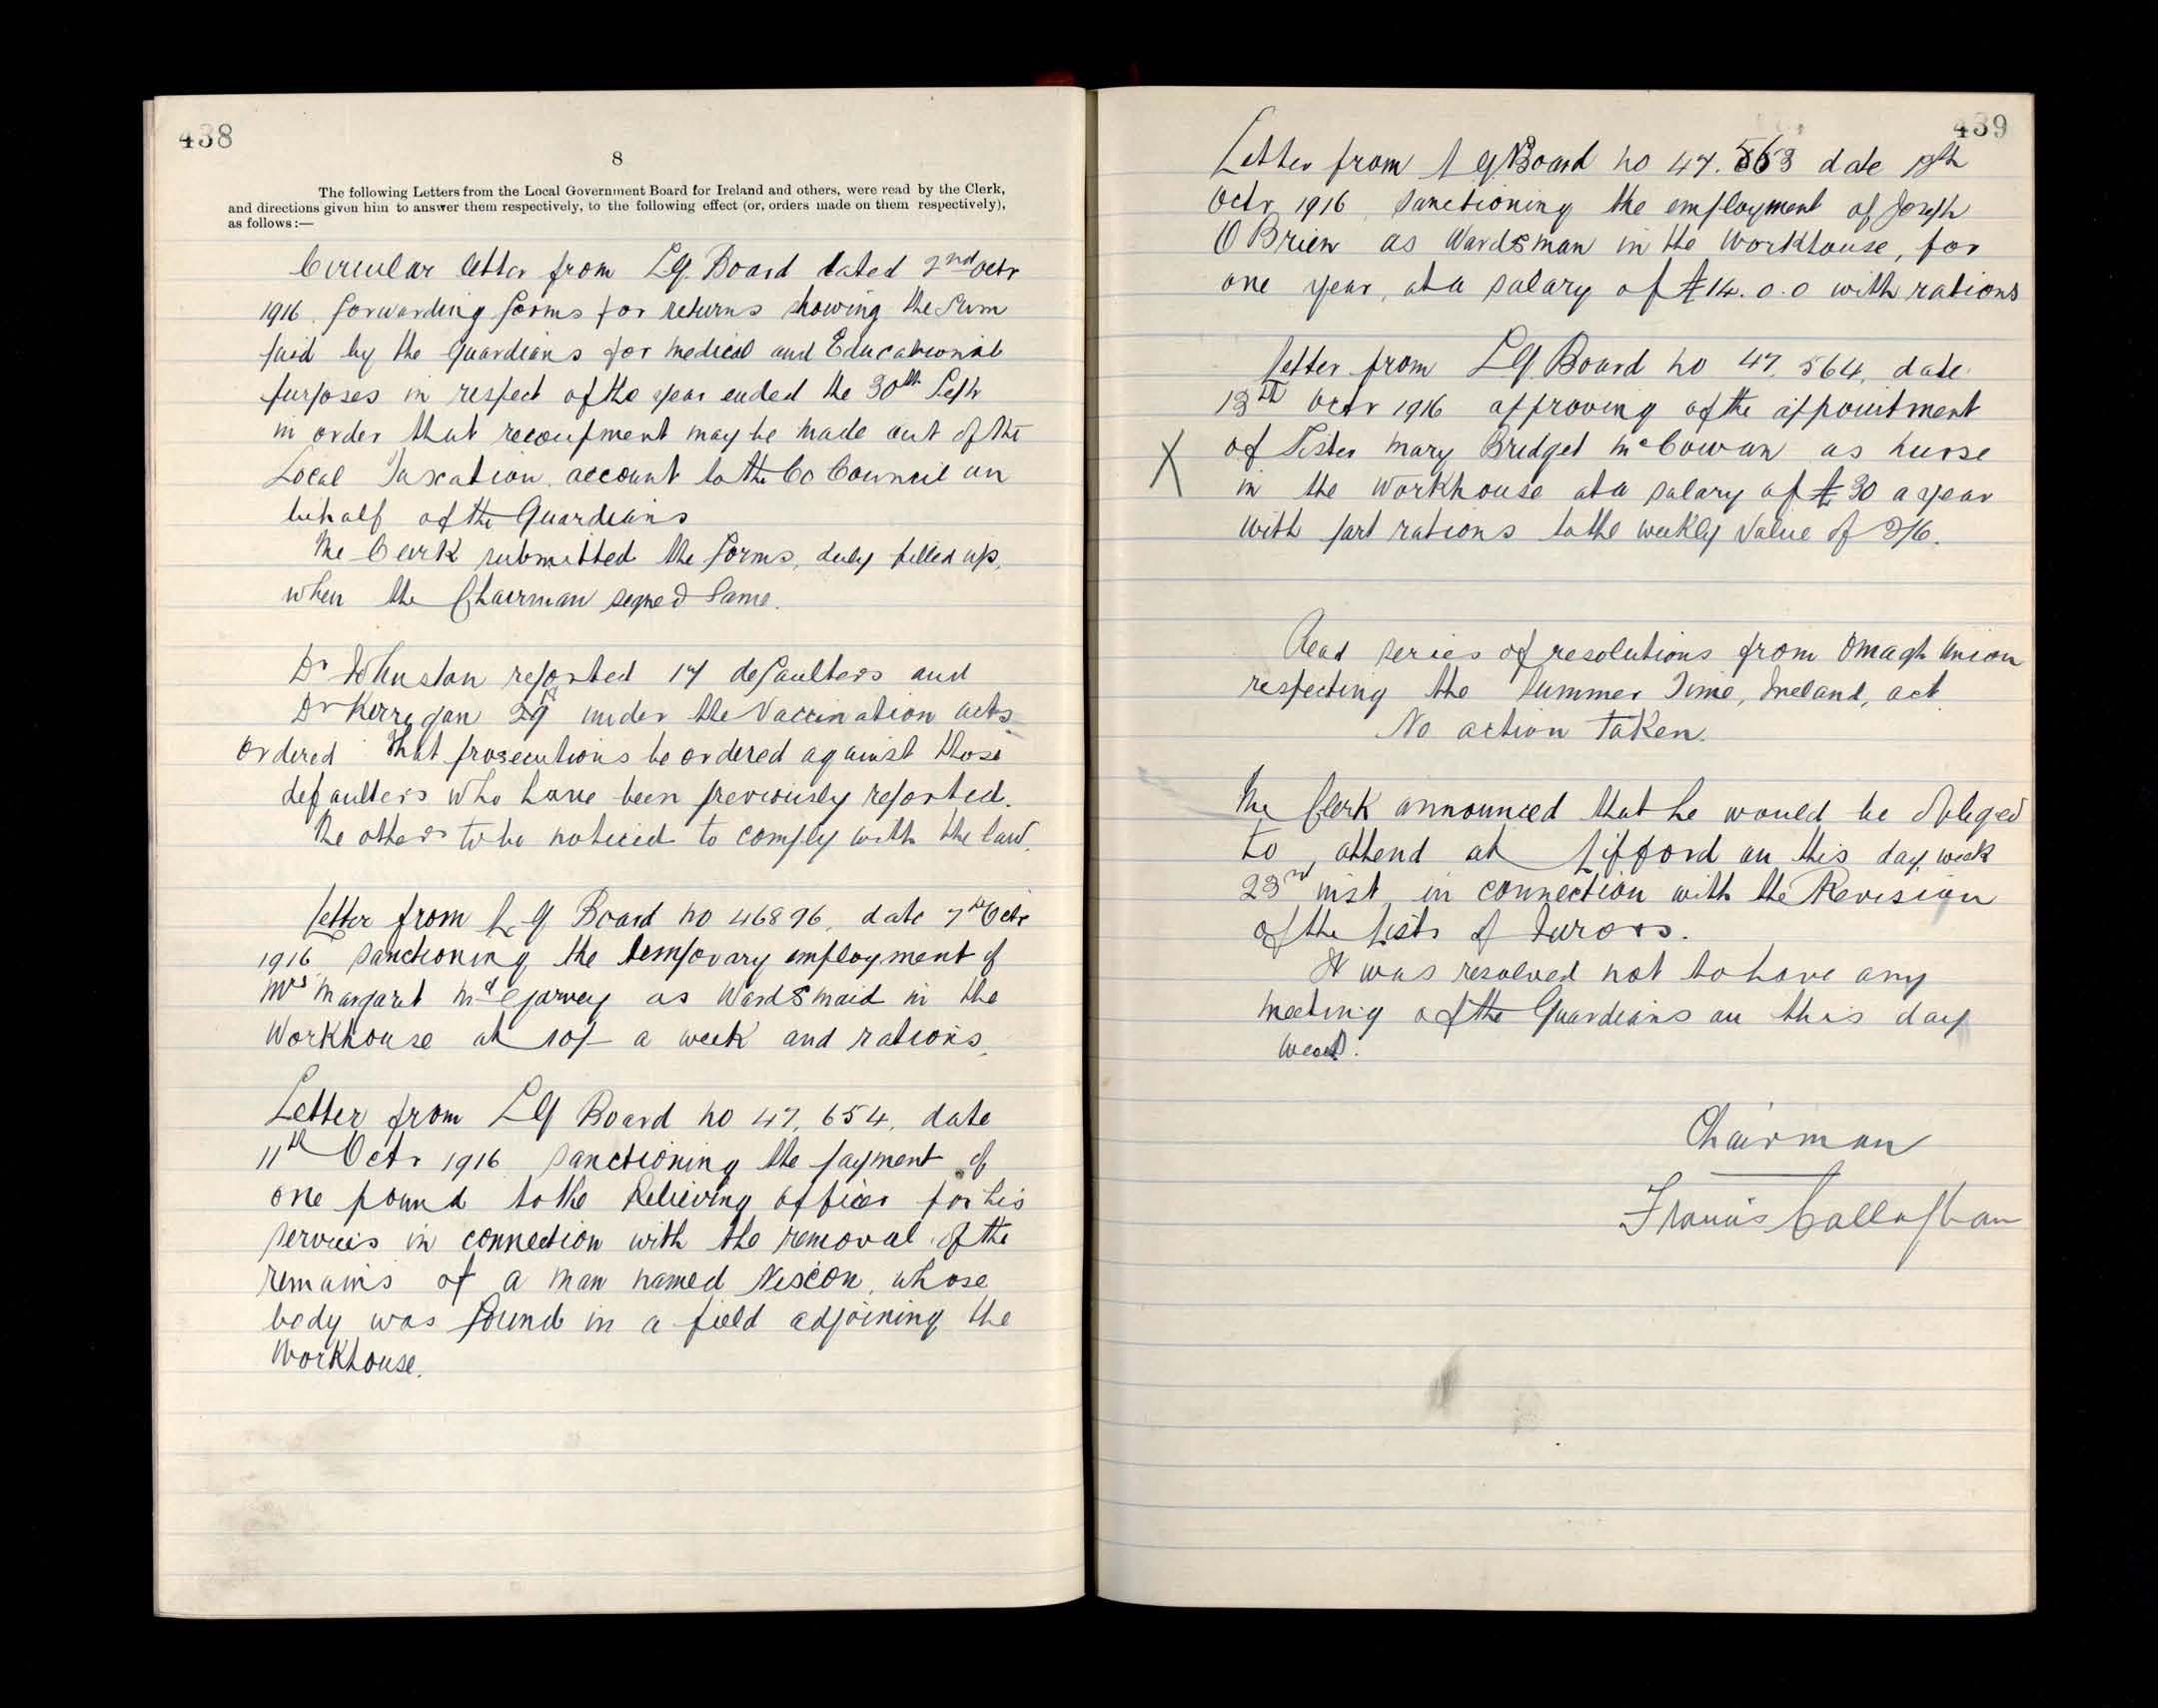 438
8
The following Letters from the Local Government Board for Ireland and others, were read by the Clerk,
and directions given him to answer them respectively, to the following effect (or, orders made on them respectively),
as follows:—
Circular letter from L.G. Board dated 2nd Octr
1916 forwarding forms for returns showing the sum
paid by the Guardians for medical and Educational
purposes in respect of the year ended the 30th Septr
in order that recoupment may be made out of the
Local Taxation account to the Co Council on
behalf of the Guardians
The Clerk submitted the forms, duly filled up,
when the Chairman signed same.
Dr Johnston reported 17 defaulters and
Dr Kerrigan 29 under the Vaccination acts
Ordered that prosecutions be ordered against those
defaulters who have been previously reported.
The others to be noticed to comply with the law.
Letter from L.G. Board no 46896, date 7th Octr
1916 sanctioning the temporary employment of
Mrs Margaret McGarvey as Wardsmaid in the
Workhouse at 10/- a week and rations.
Letter from LG Board no 47,654, date
11th Octr 1916 sanctioning the payment of
one pound to the Relieving officer for his
services in connection with the removal of the
remains of a man named Nixon, whose
body was found in a field adjoining the
Workhouse.
439
Letter from L G Board no 47.563 date
Octr 1916 sanctioning the employment of Joseph
O'Brien as Wardsman in the Workhouse, for
one year, at a salary of £14.0.0 with rations
Letter from LG. Board no 47,564, date
13th Octr 1916 approving of the appointment
X of Sister Mary Bridget McCowan as nurse
in the Workhouse at a salary of £30 a year
with part rations to the weekly value of 3/6.
Read series of resolutions from Omagh Union
respecting the Summer Time, Ireland, act
No action taken.
The Clerk announced that he would be obliged
to attend at Lifford on this day week
23rd inst. in connection with the Revision
of the Lists of Jurors.
It was resolved not to have any
meeting of the Guardians on this day
week.
Chairman
Francis Callaghan